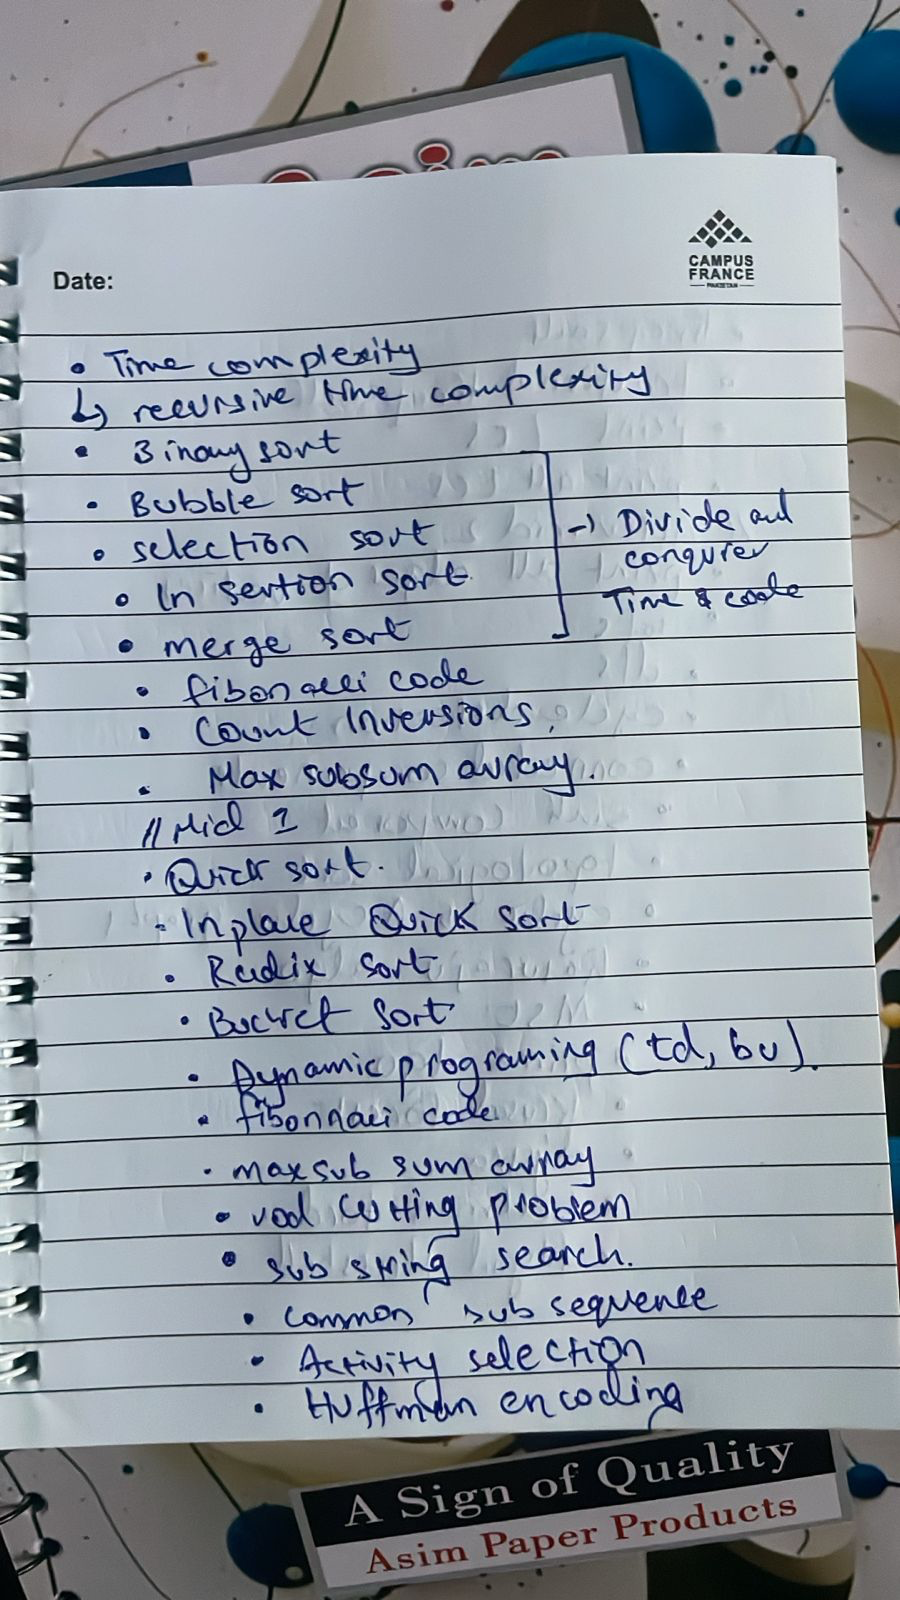 Date:
CAMPUS
FRANCE
PAKISTAN
• Time complexity
↳ recursive time complexity
• Binary sort
• Bubble sort
• selection sort
• In sertion sort
• merge sort
→ Divide and
conqurer
Time & code
• fibonacci code
• Count Inversions,
• Max subsum array.
// Mid 1
• Quick sort.
• Inplace Quick sort
• Radix sort
• Bucket sort
• Dynamic programing (td, bu).
• fibonnaci code
• maxsub sum array
• rod cutting problem
• sub string search.
• common sub sequence
• Activity selection
• Huffman encoding
A Sign of Quality
Asim Paper Products